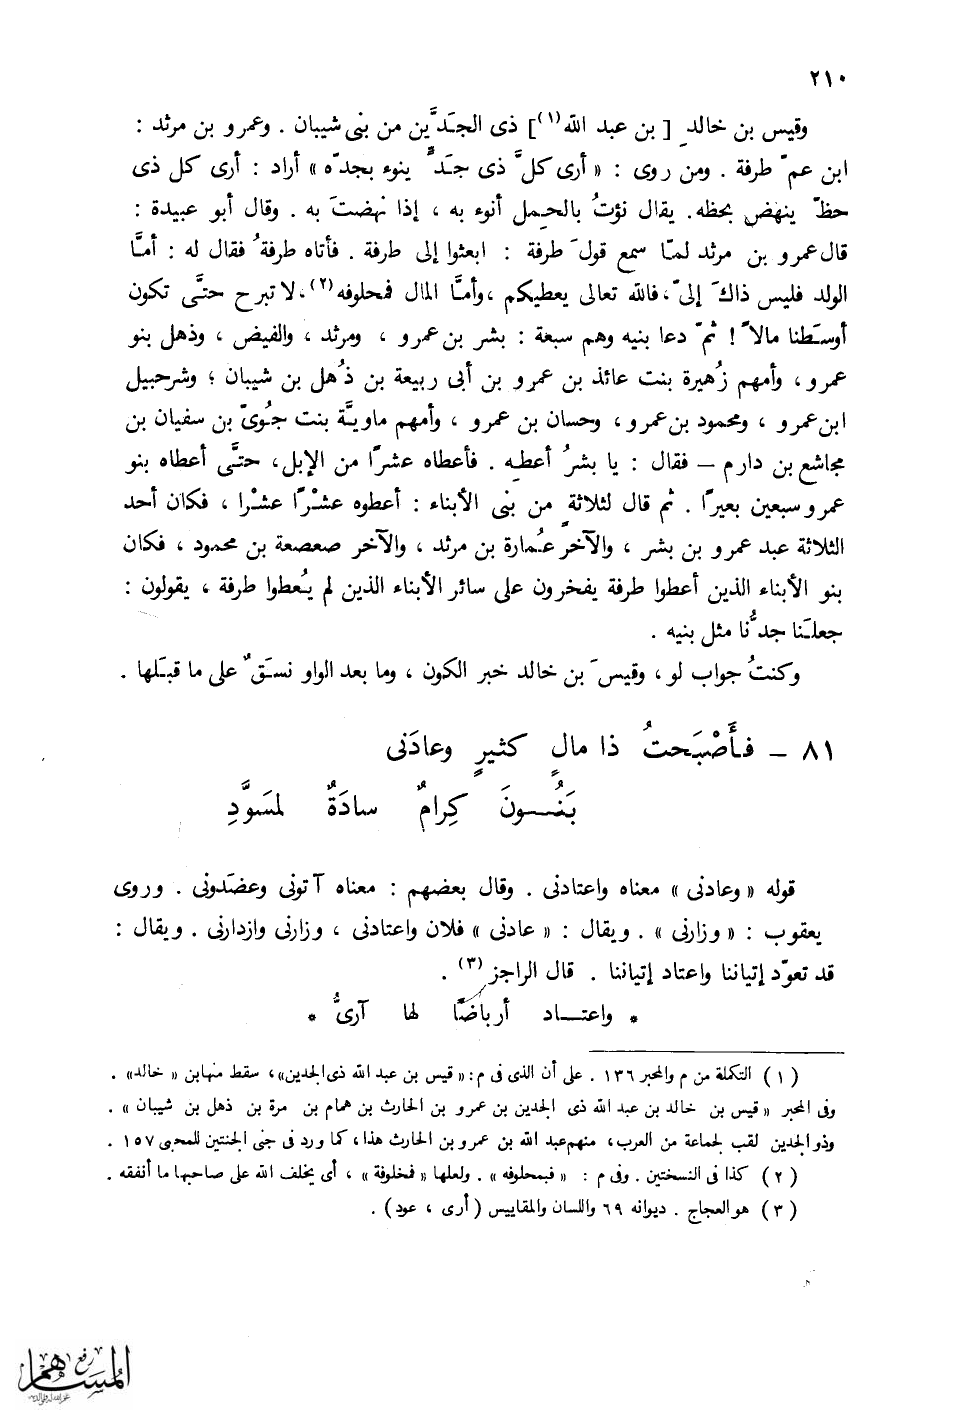 ٢١٠
وقيس بن خالدِ [ بن عبد الله(١)] ذى الجَدَّين من بنى شيبان . وعمرو بن مرثد :
ابن عمّ طرفة . ومن روى : « أرى كلَّ ذى جَدٍّ ينوء بجدّه » أراد : أرى كل ذى
حظّ ينهض بحظه. يقال نؤتُ بالحِمل أنوء به ، إذا نهضتَ به . وقال أبو عبيدة :
قال عمرو بن مرثد لمّا سمع قولَ طرفة : ابعثوا إلى طرفة . فأتاه طرفةُ فقال له : أمَّا
الولد فليس ذاكَ إلىّ، فالله تعالى يعطيكم ، وأمَّا المال فمحلوفه(٢)، لا تبرح حتَّى تكون
أوسَطنا مالاً ! ثمّ دعا بنيه وهم سبعة : بشر بن عمرو ، ومرثد ، والفيض ، وذهل بنو
عمرو ، وأمهم زُهيرة بنت عائذ بن عمرو بن أبى ربيعة بن ذُهل بن شيبان ؛ وشرحبيل
ابن عمرو ، ومحمود بن عمرو ، وحسان بن عمرو ، وأمهم ماويَّة بنت جُوىّ بن سفيان بن
مجاشع بن دارم – فقال : يا بشرُ أعطِه . فأعطاه عشرًا من الإبل، حتَّى أعطاه بنو
عمرو سبعين بعيرًا . ثم قال لثلاثةٍ من بنى الأبناء : أعطوه عشْرًا عشْرا ، فكان أحد
الثلاثة عبد عمرو بن بشر ، والآخر عُمارة بن مرثد ، والآخر صعصعة بن محمود ، فكان
بنو الأبناء الذين أعطوا طرفة يفخرون على سائر الأبناء الذين لم يُعطوا طرفة ، يقولون :
جعلَنا جدُّنا مثل بنيه .
وكنتُ جواب لو ، وقيسَ بن خالد خبر الكون ، وما بعد الواو نسَقٌ على ما قبَلها .
٨١ – فَأَصْبَحتُ ذا مالٍ كثيرٍ وعادَنى
بَنُونَ كِرامٌ سادَةٌ لمسَوَّدِ
قوله « وعادنى » معناه واعتادنى . وقال بعضهم : معناه آتونى وعضَدونى . وروى
يعقوب : « وزارنى » . ويقال : « عادنى » فلان واعتادنى ، وزارنى وازدارنى . ويقال :
قد تعوّد إتياننا واعتاد إتياننا . قال الراجز(٣) .
* واعتاد أرباضًا لها آرىُّ *
(١) التكملة من م والمحبر ١٣٦ . على أن الذى فى م: « قيس بن عبد الله ذى الجدين»، سقط منها بن « خالد» .
وفى المحبر « قيس بن خالد بن عبد الله ذى الجدين بن عمرو بن الحارث بن همام بن مرة بن ذهل بن شيبان » .
وذو الجدين لقب لجماعة من العرب، منهم عبد الله بن عمرو بن الحارث هذا، كما ورد فى جنى الجنتين للمحبى ١٥٧ .
(٢) كذا فى النسختين . وفى م : « فبمحلوفه » . ولعلها « فمخلوفة » ، أى يخلف الله على صاحبها ما أنفقه .
(٣) هو العجاج . ديوانه ٦٩ واللسان والمقاييس ( أرى ، عود ) .